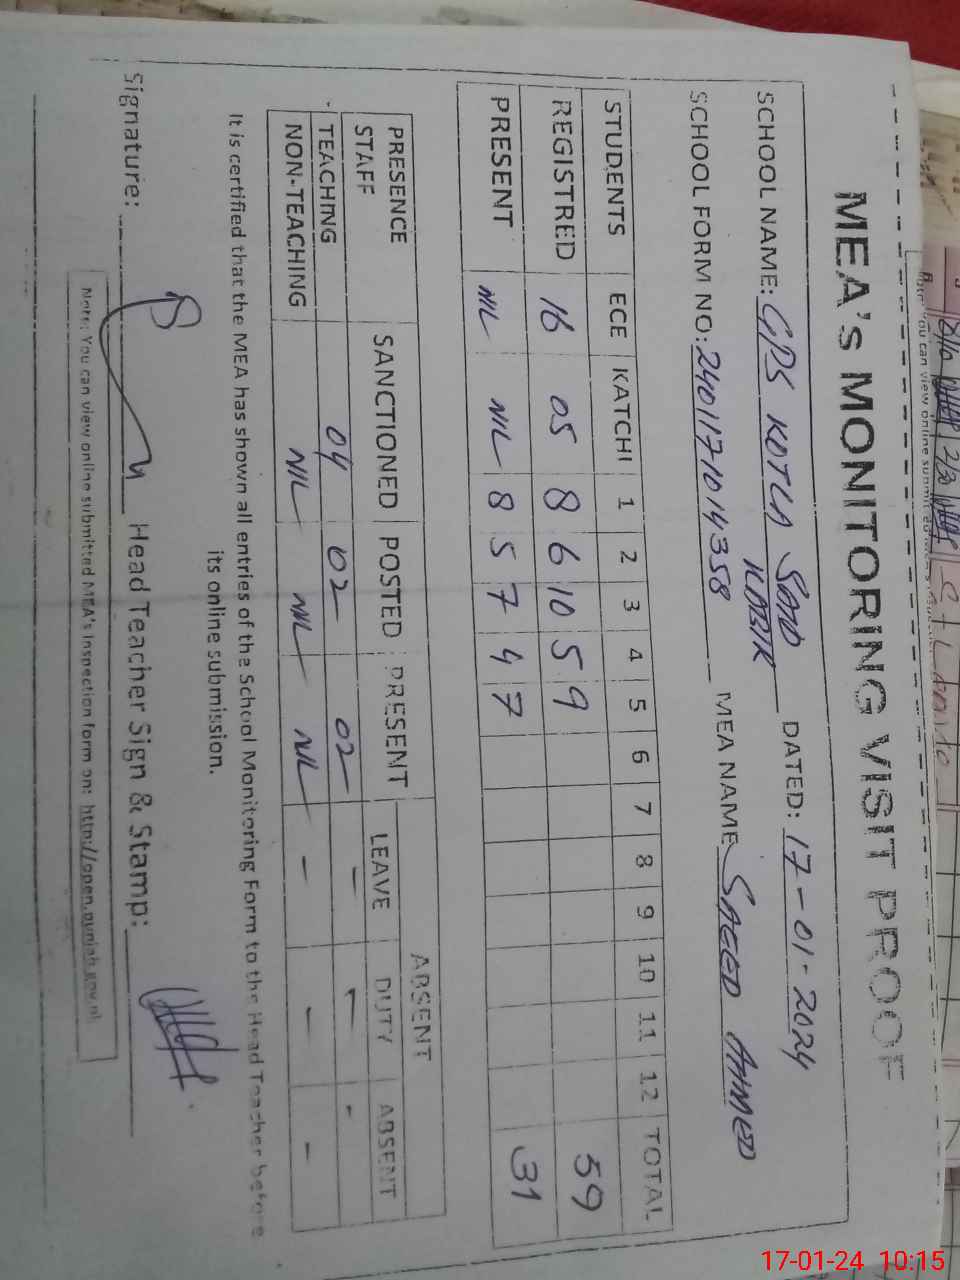 MEA's MONITORING VISIT PROOF
SCHOOL NAME: GPS KOTLA SAAD KABIR DATED: 17-01-2024
SCHOOL FORM NO: 2401171014358 MEA NAME SAEED AHMED
STUDENTS ECE KATCHI 1 2 3 4 5 6 7 8 9 10 11 12 TOTAL
REGISTRED 16 05 8 6 10 5 9 59
PRESENT NIL NIL 8 5 7 4 7 31
PRESENCE ABSENT
STAFF SANCTIONED POSTED PRESENT LEAVE DUTY ABSENT
TEACHING 04 02 02 - - -
NON-TEACHING NIL NIL NIL - - -
It is certified that the MEA has shown all entries of the School Monitoring Form to the Head Teacher before
its online submission.
Signature: Head Teacher Sign & Stamp:
Note: You can view online submitted MEA's inspection form on: http://open.punjab.gov.pk
17-01-24 10:15